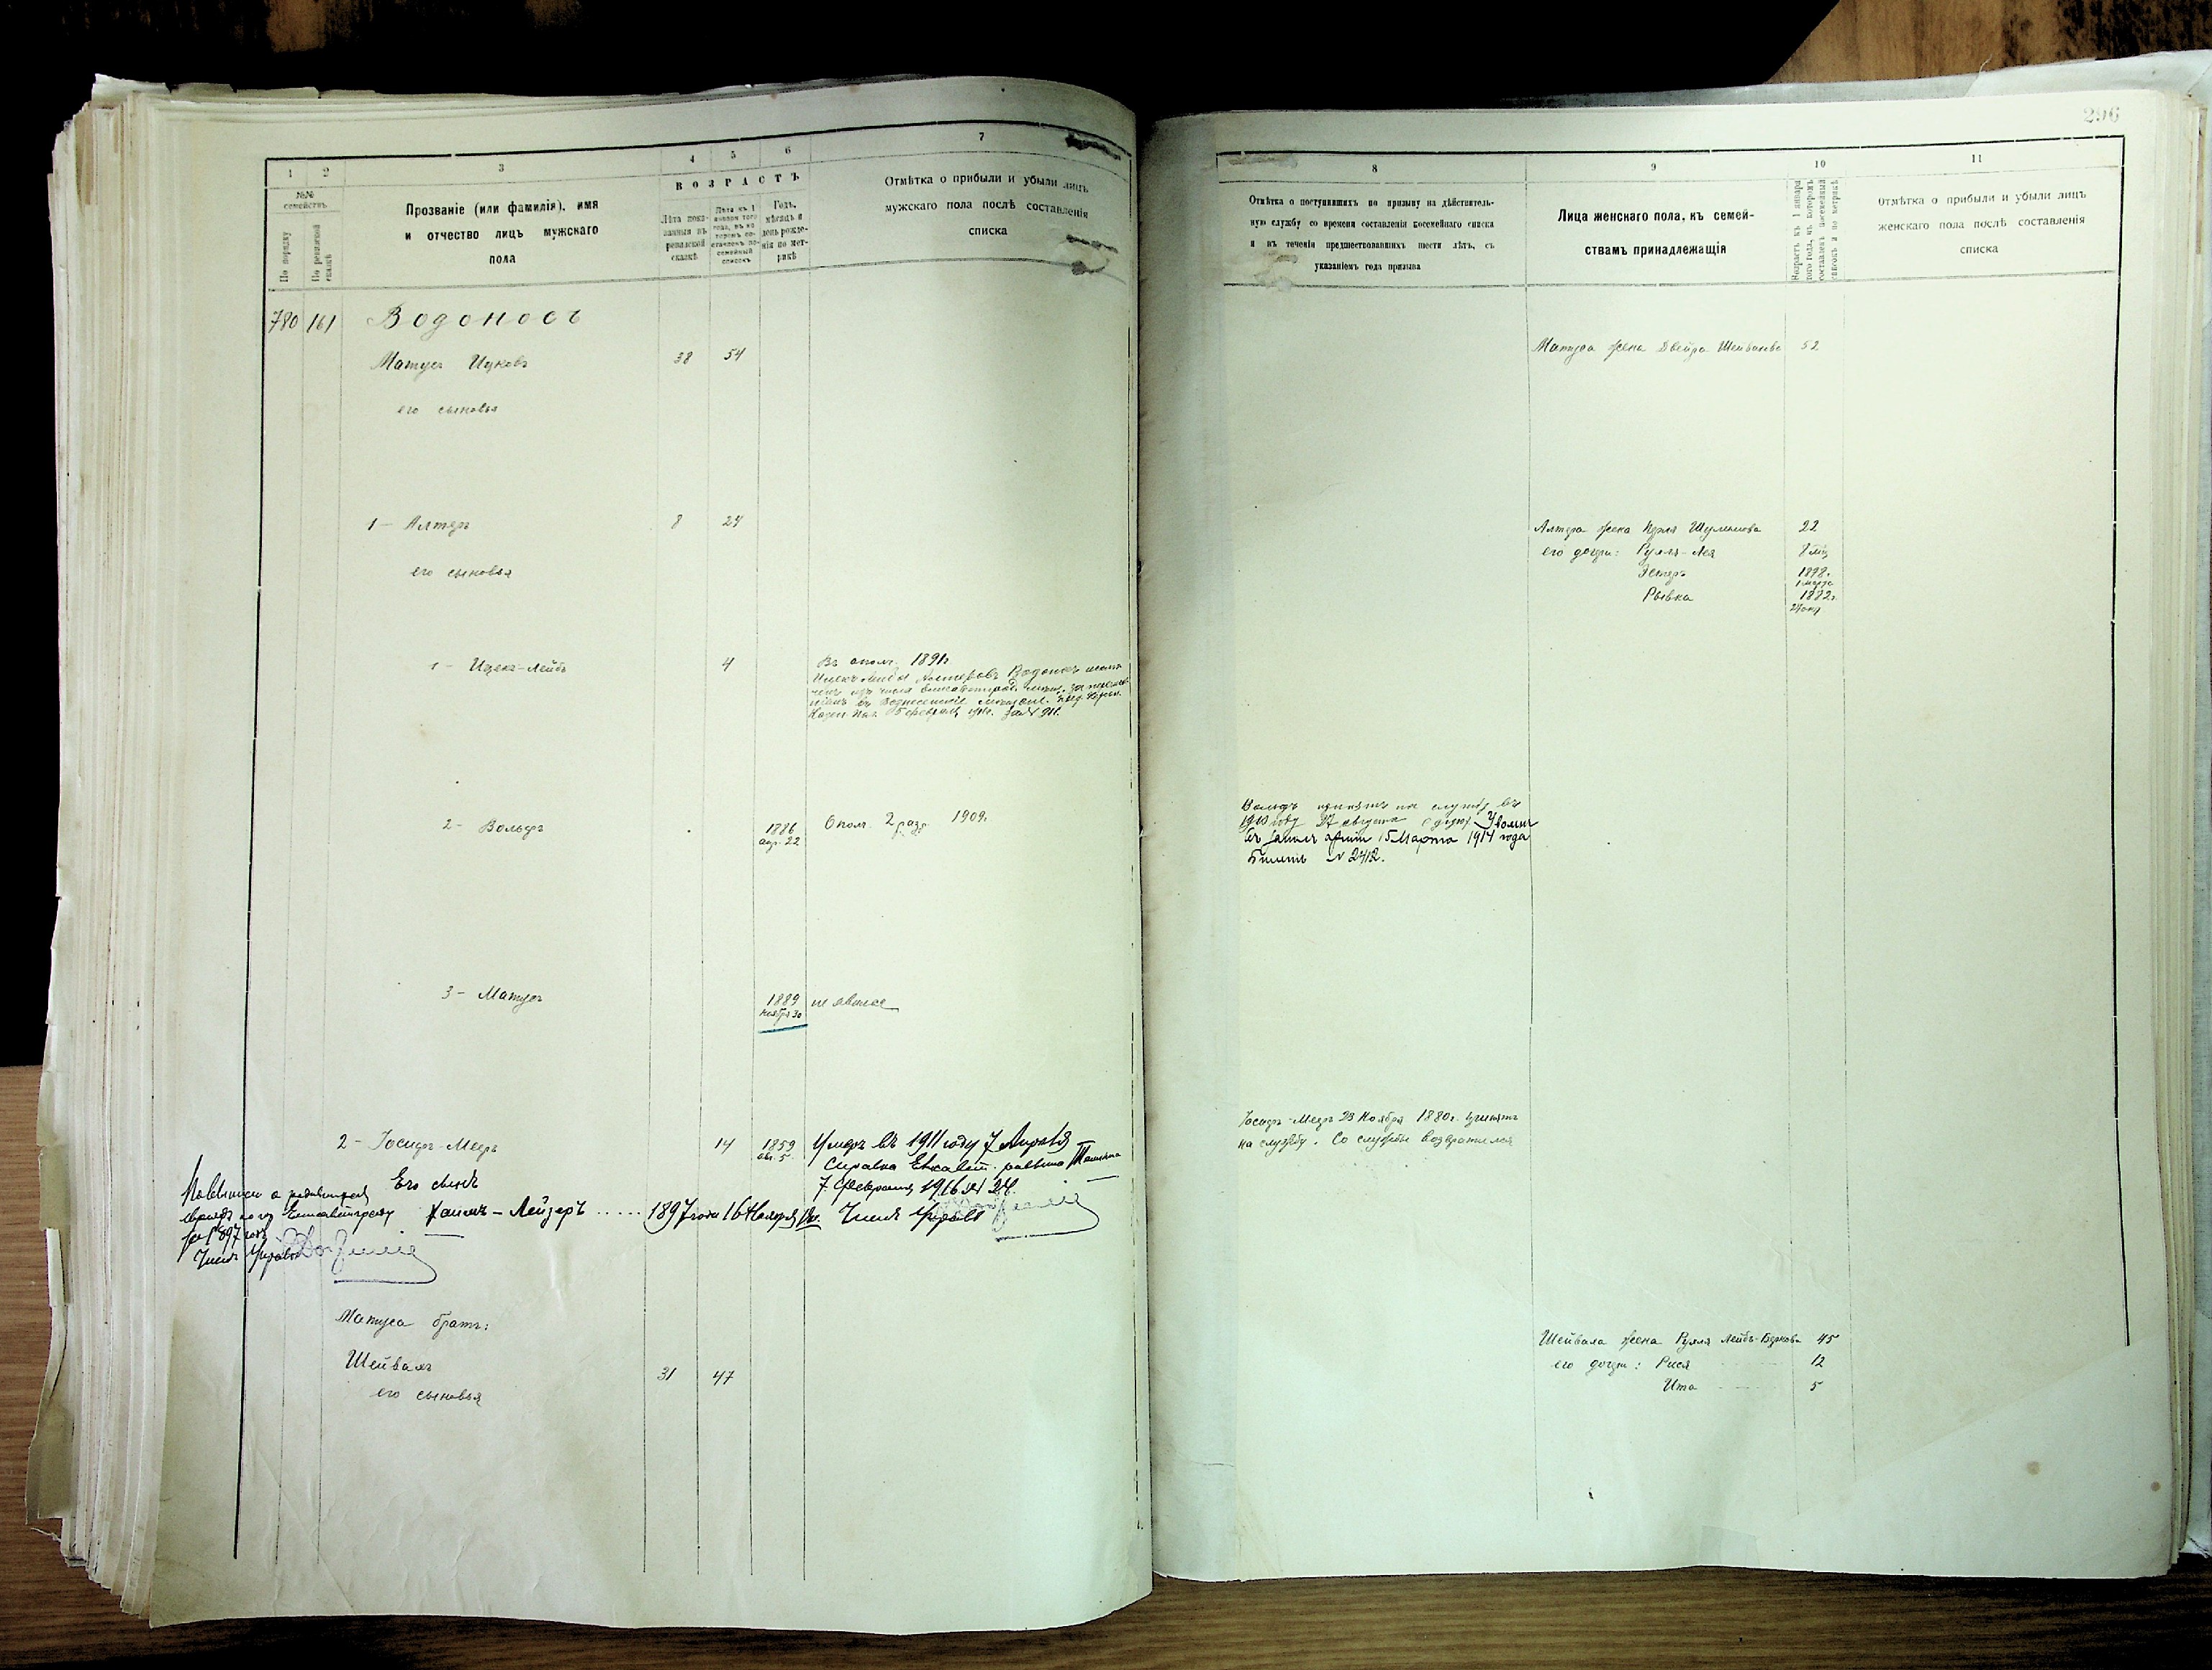 296
1 2 3 4 5 6 7
№№ семействъ
По порядку
По ревизской сказкѣ
Прозваніе (или фамилія), имя
и отчество лицъ мужскаго
пола
ВОЗРАСТЪ
Лѣта пока-
занныя въ
ревизской
сказкѣ
Лѣта къ 1
января того
года, въ ко
торомъ со-
ставленъ по-
семейный
списокъ
Годъ,
мѣсяцъ и
день рожде-
нія по мет-
рикѣ
Отмѣтка о прибыли и убыли лицъ
мужскаго пола послѣ составленія
списка
780 161 Водоносъ
Матусъ Ицковъ 38 54
его сыновья
1 - Алтеръ 8 24
его сыновья
1 - Ицекъ-Лейбъ 4
Въ опол. 1891г
2 - Вольфъ 1886 Опол. 2 разр. 1909г
авг. 22
3 - Матусъ 1889 не явился
ноября 30
2 - Іосифъ-Мееръ 14 1859 Умеръ въ 1911 году 7 Апрѣля
авг. 5. Справка Елисавет. раввина
7 Февраля 1916 № 24.
Его сынъ
Хаимъ-Лейзеръ ..... 1897 года 16 Ноября Членъ Управы
за 1897 годъ
Членъ Управы
Матуса братъ:
Шейвахъ 31 47
его сыновья
8 9 10 11
Отмѣтка о поступившихъ по призыву на дѣйствитель-
ную службу со времени составленія посемейнаго списка
и въ теченіи предшествовавшихъ шести лѣтъ, съ
указаніемъ года призыва
Лица женскаго пола, къ семей-
ствамъ принадлежащія
Возрастъ къ 1 января
того года, въ которомъ
составленъ посемейный
списокъ и по метрикѣ
Отмѣтка о прибыли и убыли лицъ
женскаго пола послѣ составленія
списка
Матуса жена Двейра Шейвахова 52
Алтера жена Перля Шулимова 22
его дочери: Рухля-Лея 8 мѣс
Эстеръ 1878г.
1 марта
Рывка 1882г.
Вольфъ принятъ на службу въ
въ запасъ арміи 15 Марта 1914 года
Билетъ № 2412.
Іосифъ-Мееръ 23 Ноября 1880г. принятъ
на службу. Со службы возвратился
Шейваха жена Рухля Лейбъ-Беркова 45
его дочери: Рися 12
Ита 5